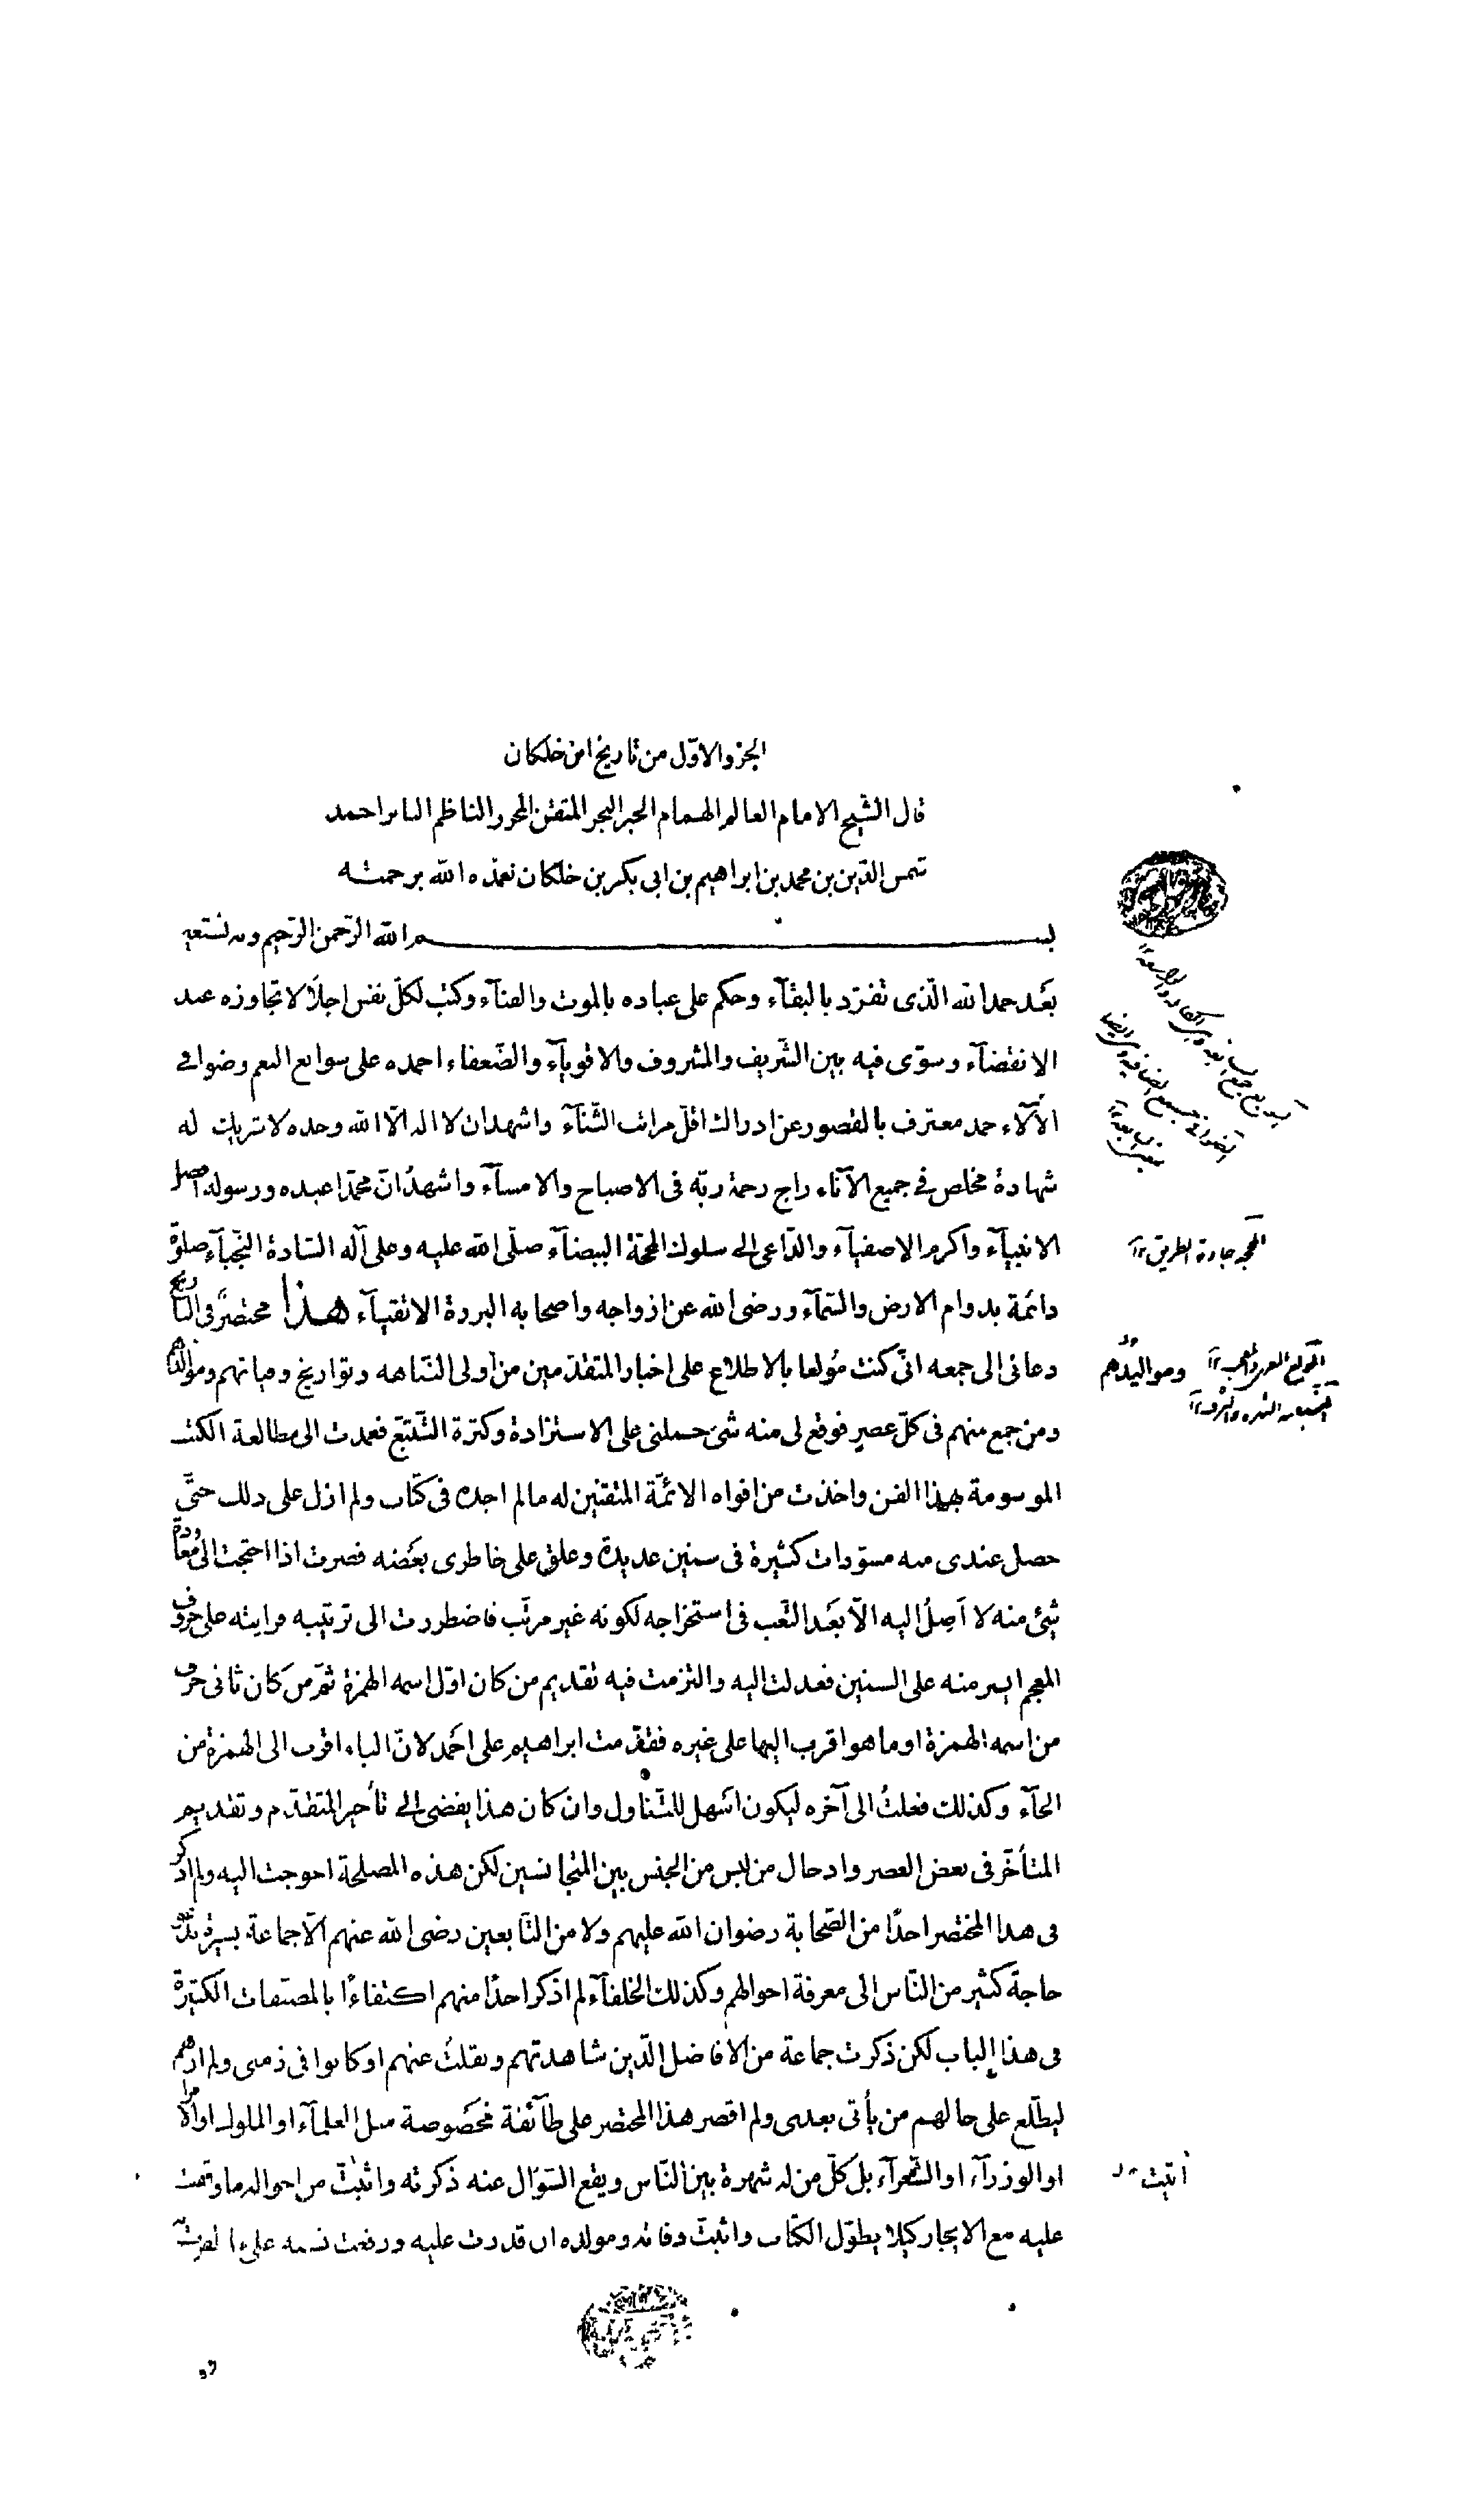 الجزو الاوّل من تاريخ ابن خلكان
قال الشّيخ الامام العالم الهمام الحبر البحر المتقن المحرر الناظم الناثر احمد
شمس الدّين بن محمد بن ابراهيم بن ابى بكر بن خلكان تغمّده الله برحمته
بسم الله الرّحمن الرّحيم وبه نستعين
بعد حمد الله الّذى تفرّد بالبقآء وحكم على عباده بالموت والفنآء وكتب لكلّ نفس اجلًا لا تجاوزه عند
الانقضآء وسوّى فيه بين الشّريف والمشروف والاقويآء والضّعفاء احمده على سوابغ النعم وضوافى
الآلاء حمد معترف بالقصور عن ادراك اقلّ مراتب الثّنآء واشهد ان لا اله الّا الله وحده لا شريك له
شهادة مخلص فى جميع الآناء راج رحمة ربّه فى الاصباح والامسآء واشهد انّ محمّدا عبده ورسوله افضل
الانبيآء واكرم الاصفيآء والدّاعى الى سلوك المحجّة البيضآء صلّى الله عليه وعلى آله السّادة النّجبآء صلوة
دائمة بدوام الارض والسّمآء ورضى الله عن ازواجه واصحابه البررة الاتقيآء هذا مختصرٌ فى التّاريخ
دعانى الى جمعه انّى كنت مُولعا بالاطلاع على اخبار المتقدّمين من اولى النّباهه وتواريخ وفياتهم وموالدهم
ومن جمع منهم فى كلّ عصرٍ فوقع لى منه شئ حملنى على الاستزادة وكثرة التّتبّع فعمدت الى مطالعة الكتب
الموسومة بهذا الفن واخذت من افواه الائمّة المتقنين له ما لم اجده فى كتاب ولم ازل على ذلك حتّى
حصل عندى منه مسوّدات كثيرة فى سنين عديدة وعلق على خاطرى بعضه فصرت اذا احتجت الى معاودة
شئ منه لا اَصِلُ اليه الّا بعد التّعب فى استخراجه لكونه غير مرتّب فاضطررت الى ترتيبه فرايته على حروف
المعجم ايسر منه على السنين فعدلت اليه والتزمت فيه تقديم من كان اوّل اسمه الهمزة ثمّ من كان ثانى حرف
من اسمه الهمزة او ما هو اقرب اليها على غيره فقدّمت ابراهيم على احمد لانّ الباء اقرب الى الهمزة من
الحآء وكذلك فعلتُ الى آخره ليكون اسهل للتّناول وان كان هذا يفضى الى تأخير المتقدّم وتقديم
المتأخّر فى بعض العصر وادخال من ليس من الجنس بين المتجانسين لكن هذه المصلحة احوجت اليه ولم اذكر
فى هذا المختصر احدًا من الصّحابة رضوان الله عليهم ولا من التّابعين رضى الله عنهم الّا جماعة يسيرة تدعو
حاجة كثير من النّاس الى معرفة احوالهم وكذلك الخلفآء لم اذكر احدًا منهم اكتفاءًا بالمصنّفات الكثيرة
فى هذا الباب لكن ذكرت جماعة من الافاضل الّذين شاهدتهم ونقلتُ عنهم او كانوا فى زمنى ولم ارهم
ليطّلع على حالهم من يأتى بعدى ولم اقصر هذا المختصر على طآئفة مخصوصة مثل العلمآء او الملوك او الامرا
او الوزرآء او الشّعرآء بل كلّ من له شهرة بين النّاس ويقع السّؤال عنه ذكرته واثبتّ من احواله ما وقفت
عليه مع الايجاز كيلا يطوّل الكتاب واثبتّ وفاته ومولده ان قدرت عليه ورفعت نسبه على ما ظفرت به
المحجه جادة الطريق
ومواليدهم
أتيت